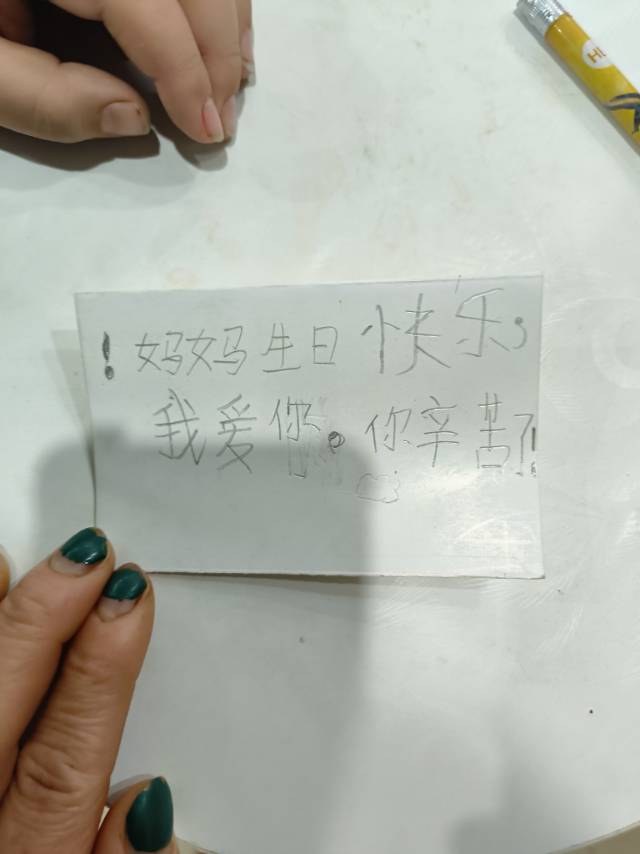 ！妈妈生日快乐，
我爱你。你辛苦了！
H